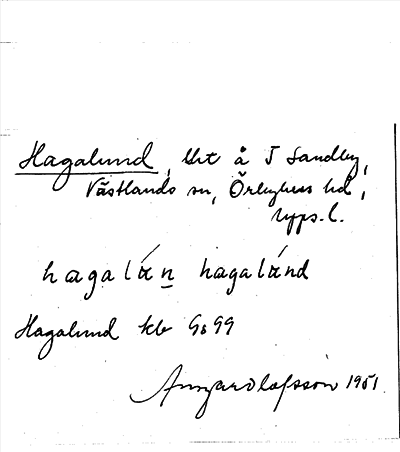 Hagalund, lht å J Sandby,
Västlands sn, Örbyhus hd,
Upps. l.
hagalán hagalánd
Hagalund kb Gs 99
Ansgar Olafsson 1951